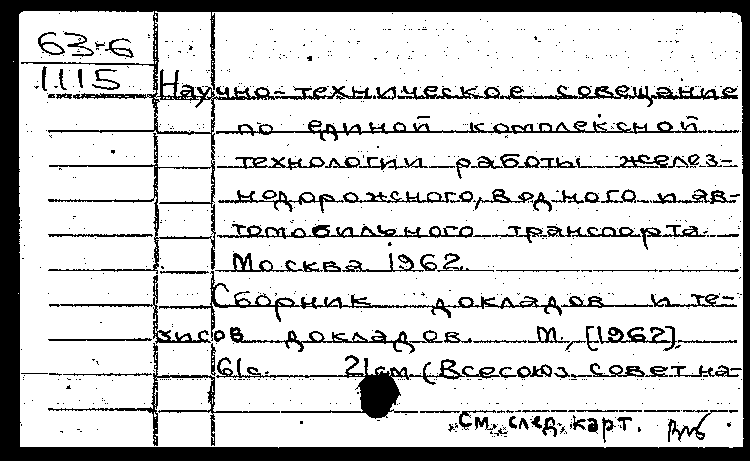 63-6
1115
Научно-техническое совещание
по единой комплексной
технологии работы желез-
нодорожного, водного и ав-
томобильного транспорта.
Москва 1962.
Сборник докладов и те-
зисов докладов. М., [1962].
61с. 21см (Всесоюз. совет на-
См. след. карт.